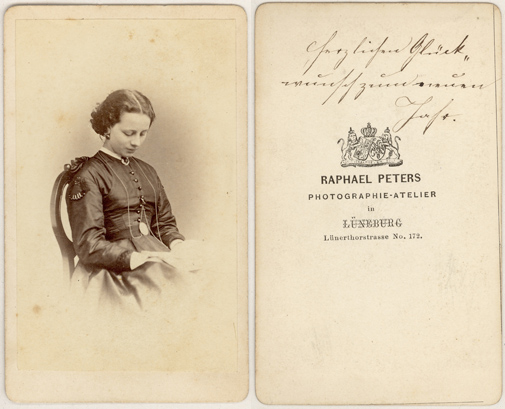 Herzlichen Glück„
wunsch zum neuen
Jahr.
RAPHAEL PETERS
PHOTOGRAPHIE-ATELIER
in
LÜNEBURG
Lünerthorstrasse No. 172.